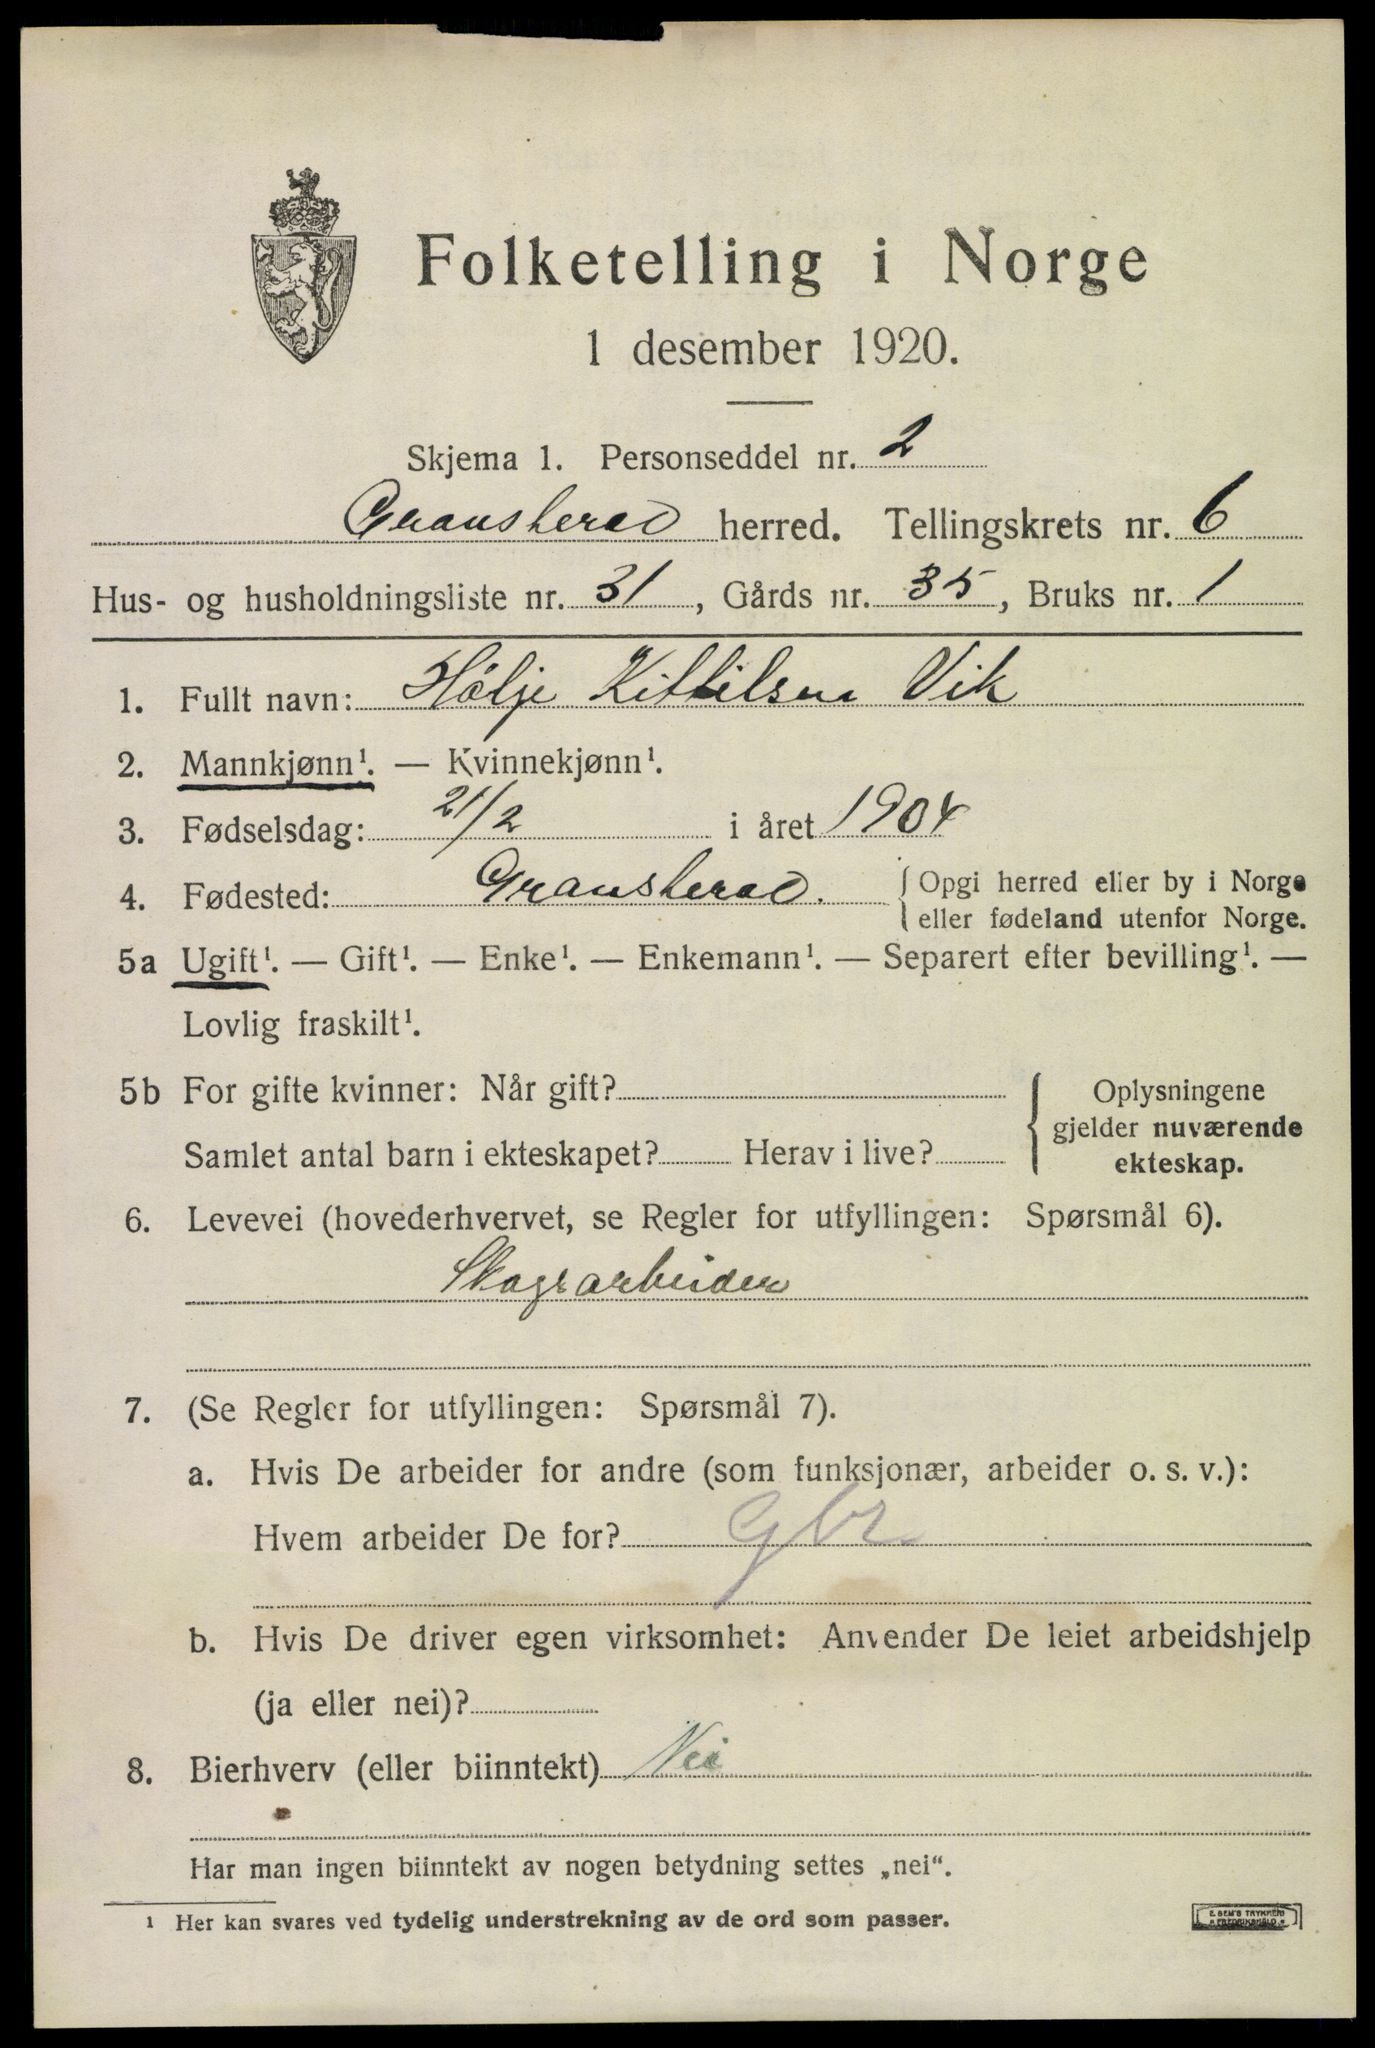 Folketelling i Norge
1 desember 1920.
Skjema 1. Personseddel nr. 2
Gransherad herred. Tellingskrets nr. 6
Hus- og husholdningsliste nr. 31, Gårds nr. 35, Bruks nr. 1
1. Fullt navn: Hølje Kittilsen Vik
2. Mannkjønn¹. — Kvinnekjønn¹.
3. Fødselsdag: 21/2 i året 1904
4. Fødested: Gransherad. { Opgi herred eller by i Norge
eller fødeland utenfor Norge.
5a Ugift¹. — Gift¹. — Enke¹. — Enkemann¹. — Separert efter bevilling¹. —
Lovlig fraskilt¹.
5b For gifte kvinner: Når gift?
Samlet antal barn i ekteskapet? Herav i live?
Oplysningene
gjelder nuværende
ekteskap.
6. Levevei (hovederhvervet, se Regler for utfyllingen: Spørsmål 6).
Skogsarbeider
7. (Se Regler for utfyllingen: Spørsmål 7).
a. Hvis De arbeider for andre (som funksjonær, arbeider o. s. v.):
Hvem arbeider De for? Gbr
b. Hvis De driver egen virksomhet: Anvender De leiet arbeidshjelp
(ja eller nei)?
8. Bierhverv (eller biinntekt) Nei
Har man ingen biinntekt av nogen betydning settes „nei“.
¹ Her kan svares ved tydelig understrekning av de ord som passer.
E. SEM'S TRYKKERI
FREDRIKSHALD